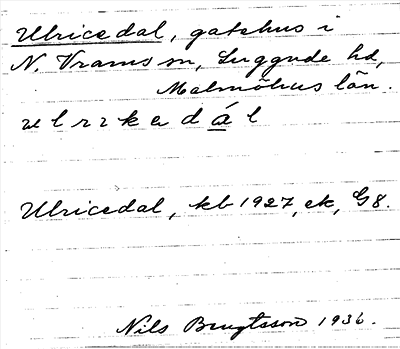 Ulricedal, gatehus i
N. Vrams sn, Luggude hd,
Malmöhus län.
ulrikedál
Ulricedal, kb 1927, ek, G8.
Nils Bengtsson 1936.